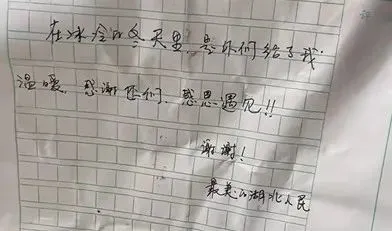 在冰冷的冬天里，是你们给了我
温暖，感谢你们，感恩遇见!!
谢谢！
最美的湖北人民